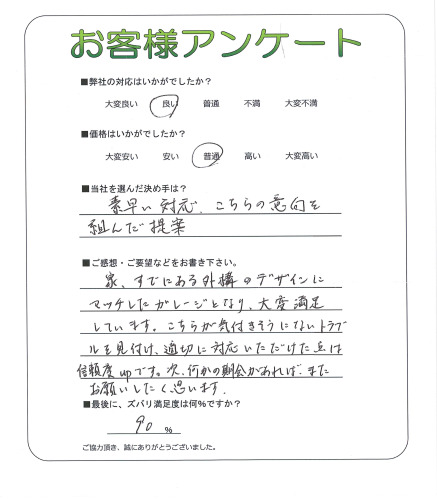 お客様アンケート
■弊社の対応はいかがでしたか?
大変良い 良い 普通 不満 大変不満
■価格はいかがでしたか?
大変安い 安い 普通 高い 大変高い
■当社を選んだ決め手は?
素早い対応、こちらの意向を
組んだ提案
■ご感想・ご要望などをお書き下さい。
家、すでにある外構のデザインに
マッチしたガレージとなり、大変満足
しています。こちらが気付きそうにないトラブ
ルを見付け、適切に対応いただけた点は
信頼度upです。次、何かの機会があれば、また
お願いしたく思います。
■最後に、ズバリ満足度は何%ですか?
90 %
ご協力頂き、誠にありがとうございました。